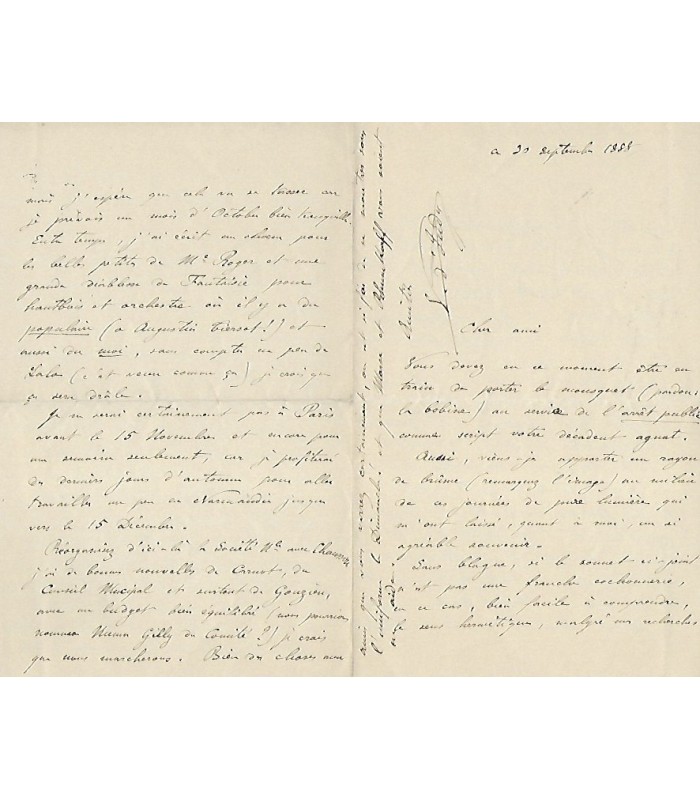 ce 30 septembre 1888
Cher ami
Vous devez en ce moment être en
train de porter le mousquet (pardon:
la bobine) au service de l'arrêt public
comme script votre décadent
Aussi, viens-je apporter un rayon
de brûme (remarquez l'image) au milieu
de ces journées de pure lumière qui
m'ont laissé, quant à moi, un si
agréable souvenir.
Sans blague, si le sonnet ci-joint
n'est pas une franche cochonnerie,
ce cas, bien facile à comprendre,
le sens hermétique, malgré vos recherches
mais j'espère que cela va se tasser car
je prévois un mois d'Octobre bien tranquille.
Entre temps, j'ai écrit un chœur pour
les belles petites de Mr Roger et une
grande diablesse de Fantaisie pour
hautbois et orchestre où il y a du
populaire (o Augustin Tiersot!) et
aussi du moi, sans compter un peu de
Lalo (c'est venu comme ça) je crois que
ça sera drôle.
Je ne serai certainement pas à Paris
avant le 15 Novembre et encore pour
une semaine seulement, car je profiterai
des derniers jours d'automne pour aller
travailler un peu en Normandie jusque
vers le 15 Décembre.
Réorganisez d'ici-là la Société Nle avec Chausson
j'ai de bonnes nouvelles de Carnot, du
Conseil Municipal et surtout de Gouzien,
avec un budget bien équilibré (nous pourrions
nommer Numa Gilly du Comité?) je crois
que nous marcherons. Bien des choses aux
amis que vous verrez certainement,
l'uniforme le Dimanche! et que Mars et
garde
Amitiés
V. d'Indy